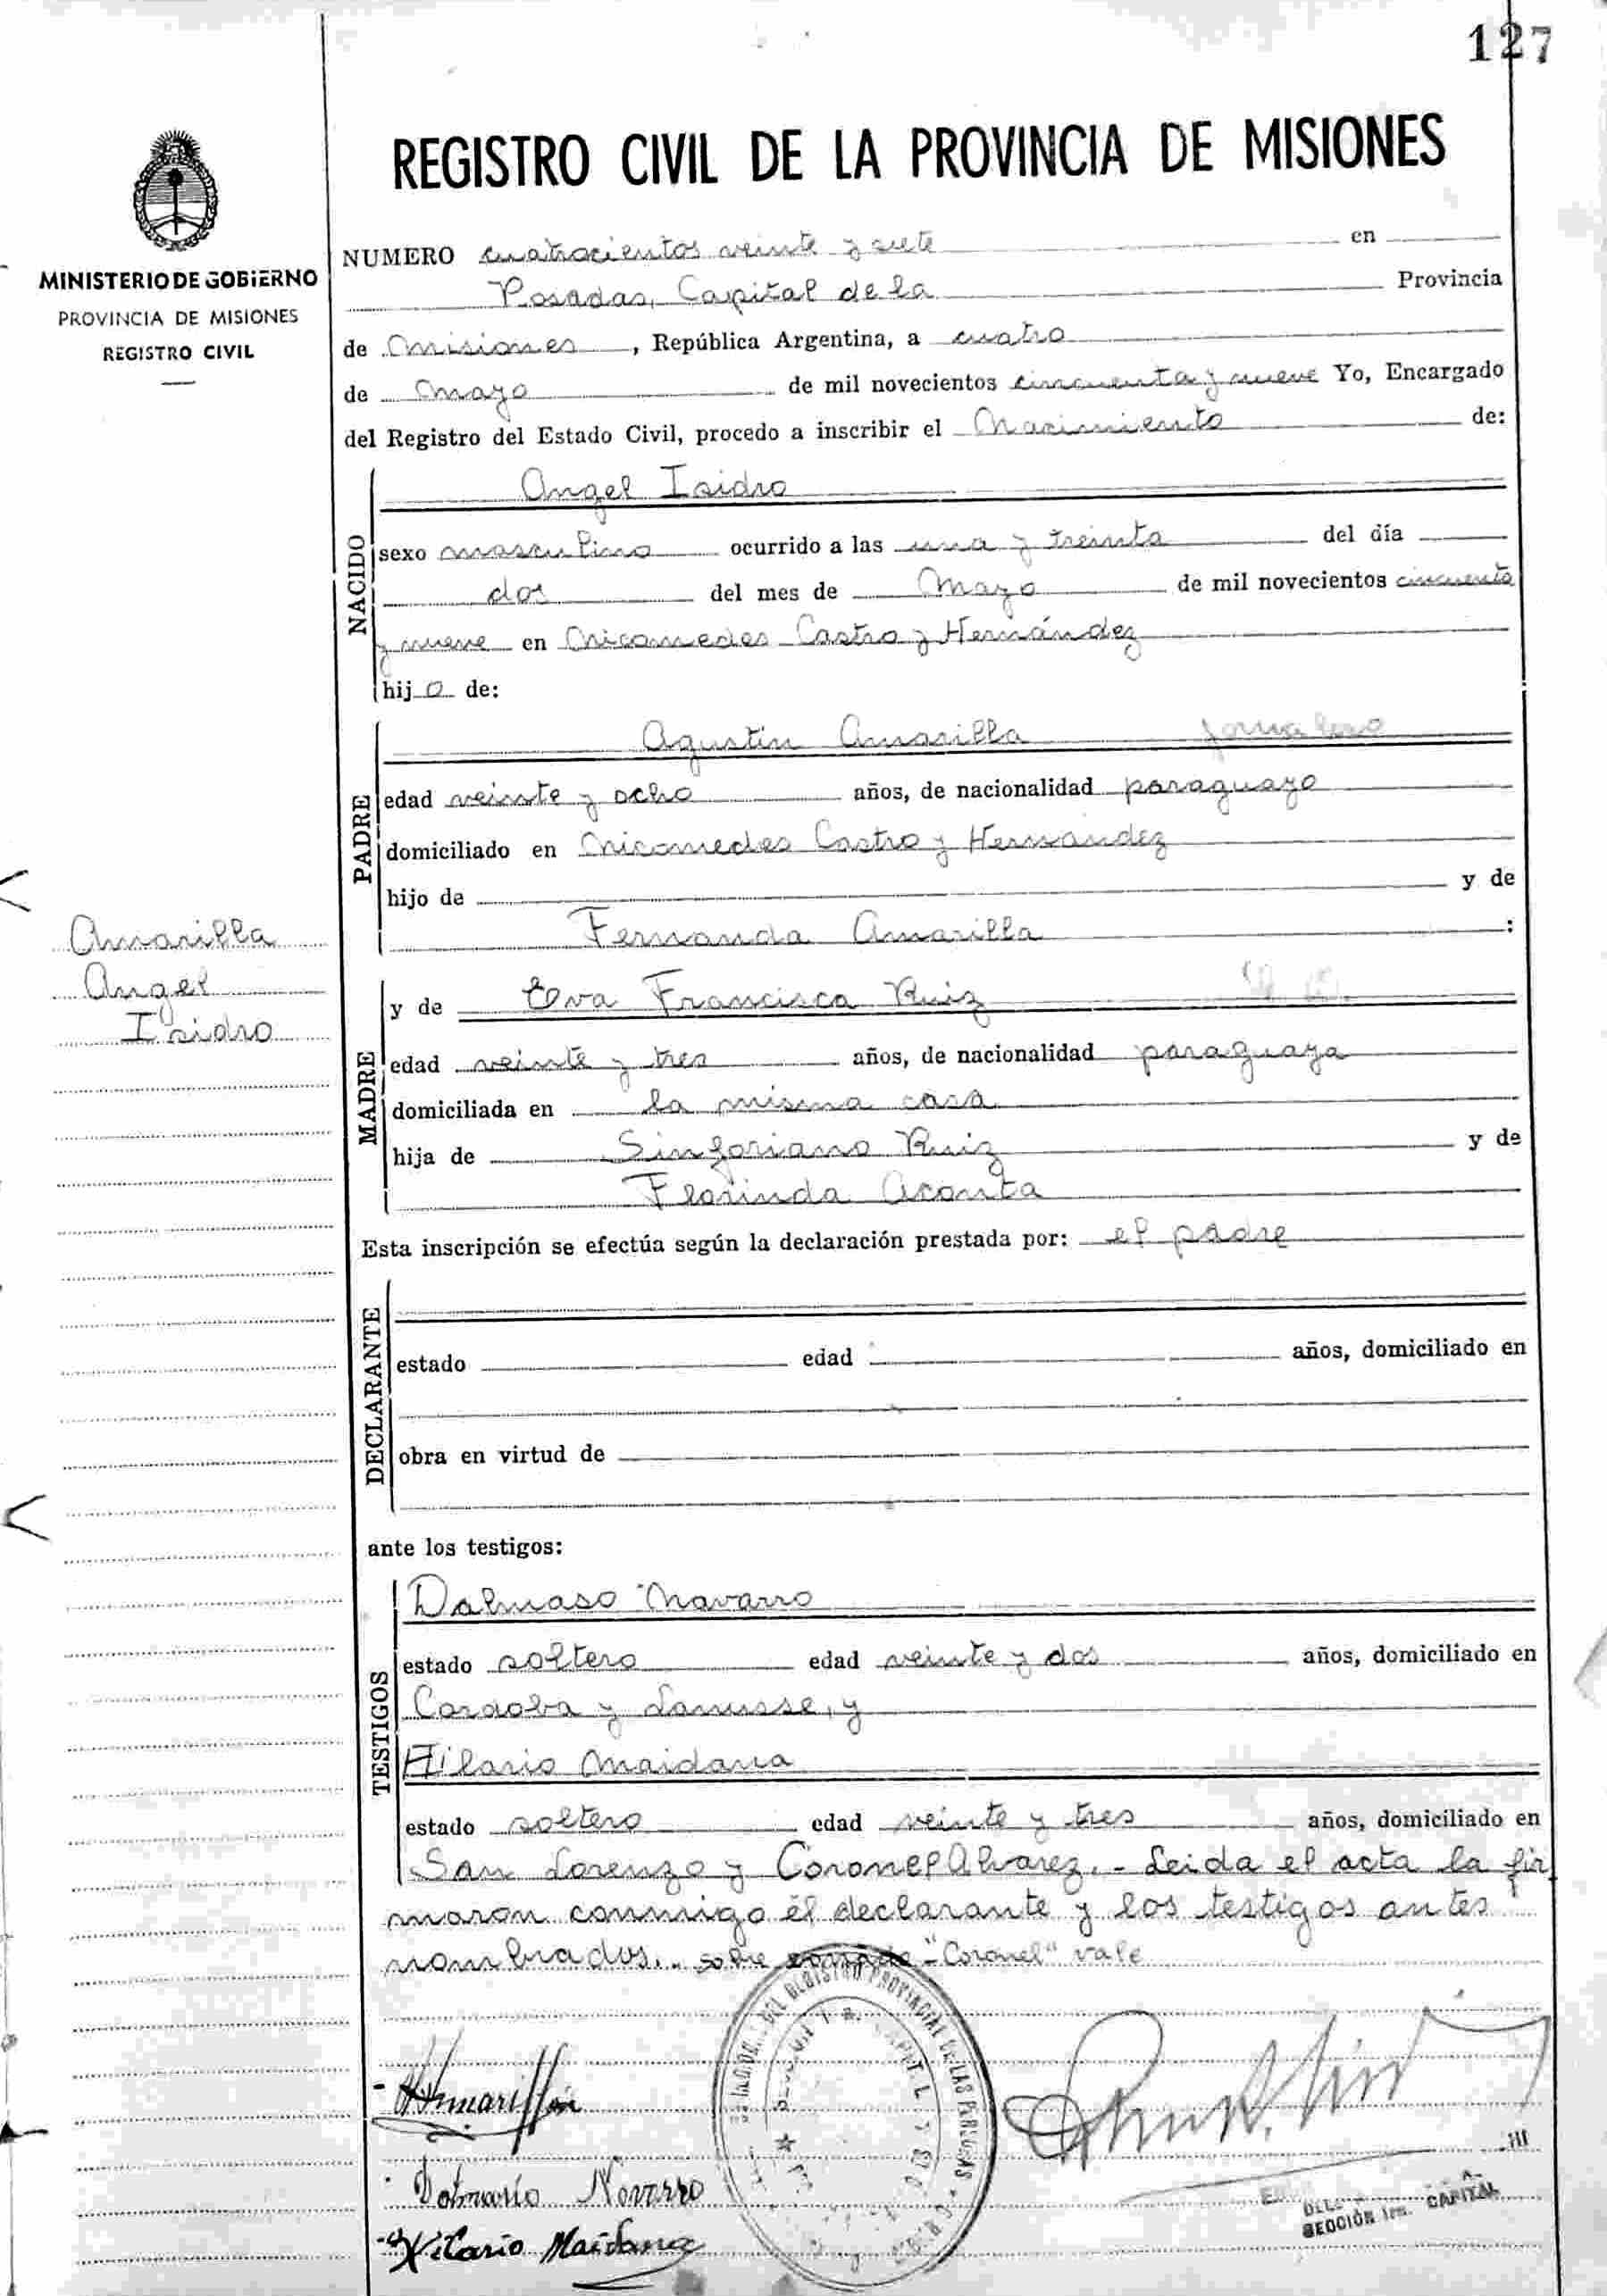 127
REGISTRO CIVIL DE LA PROVINCIA DE MISIONES
MINISTERIO DE GOBIERNO
PROVINCIA DE MISIONES
REGISTRO CIVIL
NUMERO cuatrocientos veinte y siete en
Posadas, Capital de la Provincia
de Misiones, República Argentina, a cuatro
de Mayo de mil novecientos cincuenta y nueve Yo, Encargado
del Registro del Estado Civil, procedo a inscribir el Nacimiento de:
NACIDO
Angel Isidro
sexo masculino ocurrido a las una y treinta del día
dos del mes de Mayo de mil novecientos cincuenta
y nueve en Nicomedes Castro y Hernández
hijo de:
PADRE
Agustin Amarilla jornalero
edad veinte y ocho años, de nacionalidad paraguayo
domiciliado en Nicomedes Castro y Hernández
hijo de y de
Fernanda Amarilla :
Amarilla
Angel
Isidro
MADRE
y de Eva Francisca Ruiz
edad veinte y tres años, de nacionalidad paraguaya
domiciliada en la misma casa
hija de Sinforiano Ruiz y de
Florinda Acosta
Esta inscripción se efectúa según la declaración prestada por: el padre
DECLARANTE
estado edad años, domiciliado en
obra en virtud de
ante los testigos:
TESTIGOS
Dalmaso Navarro
estado soltero edad veinte y dos años, domiciliado en
Cordoba y Lanusse, y
Hilario Maidana
estado soltero edad veinte y tres años, domiciliado en
San Lorenzo y Coronel Alvarez. - Leida el acta la fir
maron conmigo él declarante y los testigos antes
nombrados. - sobre raspado - "Coronel" vale
Amarilla
Dalmacio Navarro
Hilario Maidana
SECCIÓN 1ra. CAPITAL